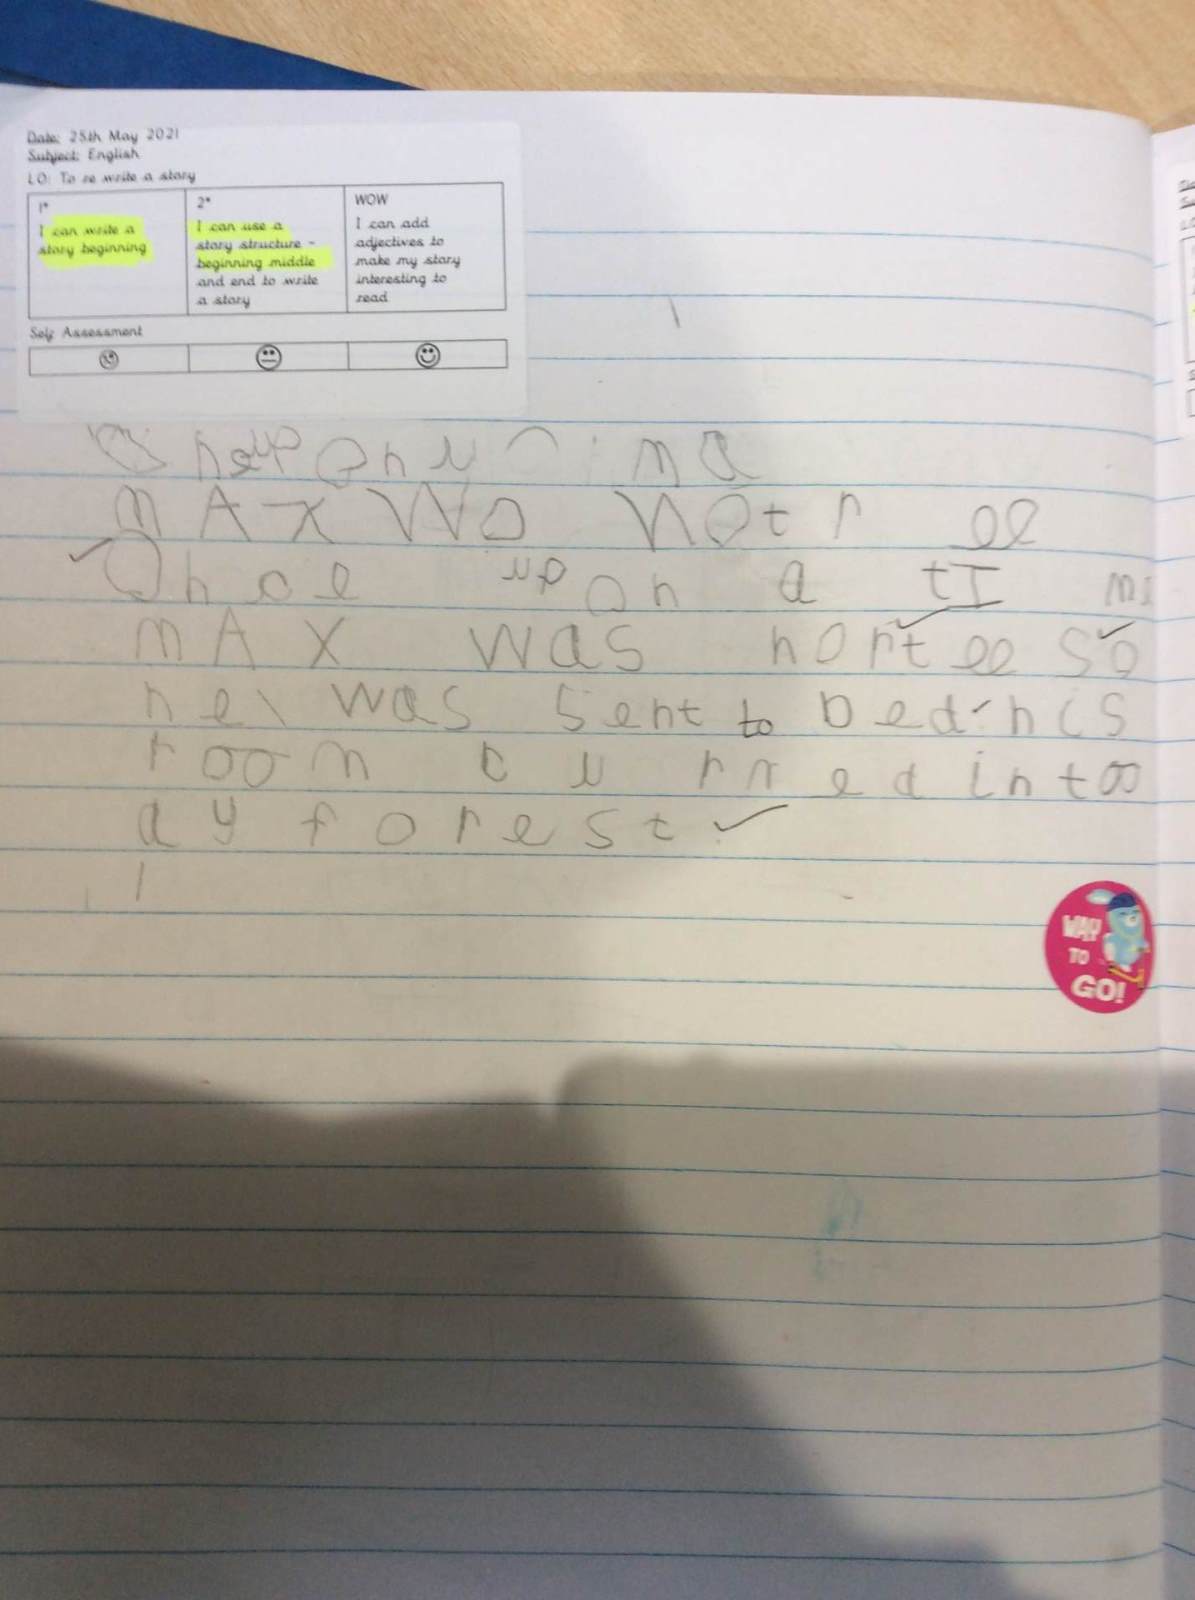 Date: 25th May 2021
Subject: English
LO: To re write a story
1*
I can write a
story beginning
2*
I can use a
story structure -
beginning middle
and end to write
a story
WOW
I can add
adjectives to
make my story
interesting to
read
Self Assessment
MAX Wo Notr ee
Once upon a tI me
MAX was nortee so
he was sent to bed his
room burned intoo
ay forest
WAY
TO
GO!